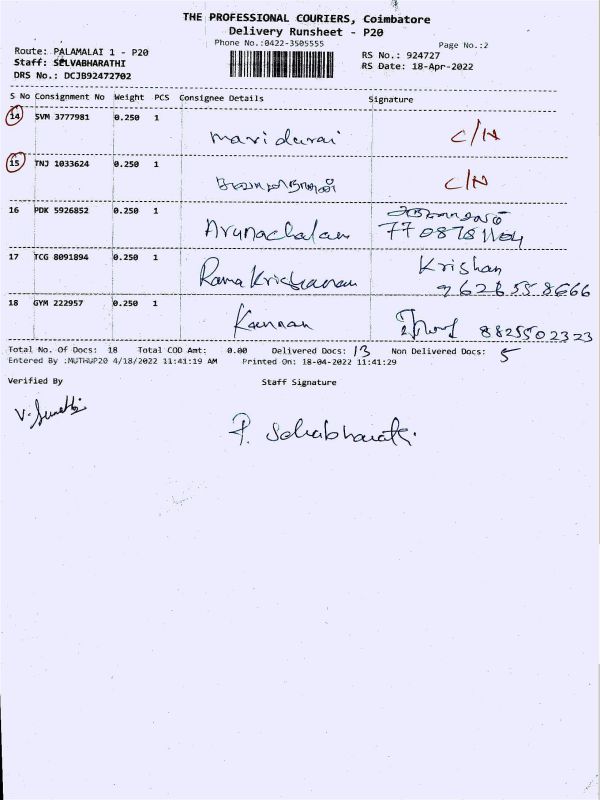 THE PROFESSIONAL COURIERS, Coimbatore
Delivery Runsheet - P20
Phone No.:0422-3505555
Page No.:2
Route: PALAMALAI 1 - P20
RS No.: 924727
Staff: SELVABHARATHI
RS Date: 18-Apr-2022
DRS No.: DCJB92472702
S No Consignment No Weight PCS Consignee Details Signature
14 SVM 3777981 0.250 1
maridurai C/N
15 TNJ 1033624 0.250 1
C/N
16 PDK 5926852 0.250 1
Arunachalam
17 TCG 8091894 0.250 1 Krishan
Rama Krishanan
18 GYM 222957 0.250 1
Kannan 8825502323
Total No. Of Docs: 18 Total COD Amt: 0.00 Delivered Docs: 13 Non Delivered Docs: 5
Entered By :MUTHUP20 4/18/2022 11:41:19 AM Printed On: 18-04-2022 11:41:29
Verified By Staff Signature